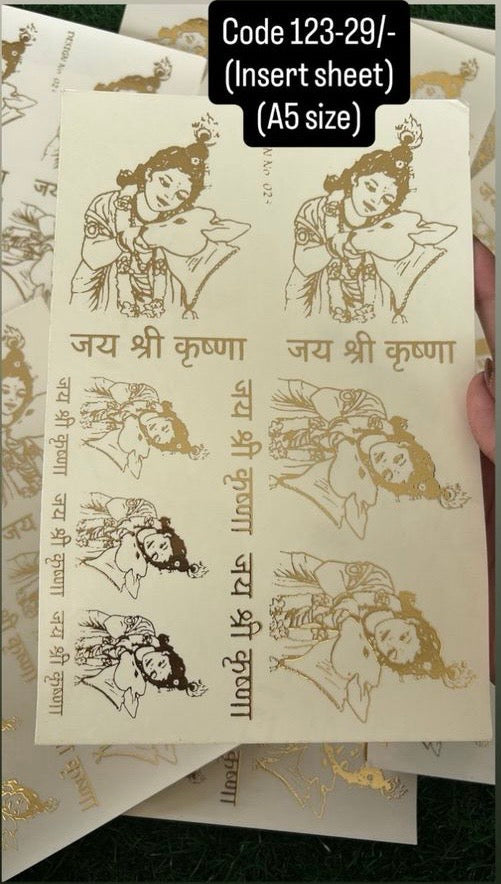 Code 123-29/-
(Insert sheet)
(A5 size)
जय श्री कृष्णा
जय श्री कृष्णा
जय श्री कृष्णा
जय श्री कृष्णा
जय श्री कृष्णा
जय श्री कृष्णा
जय श्री कृष्णा